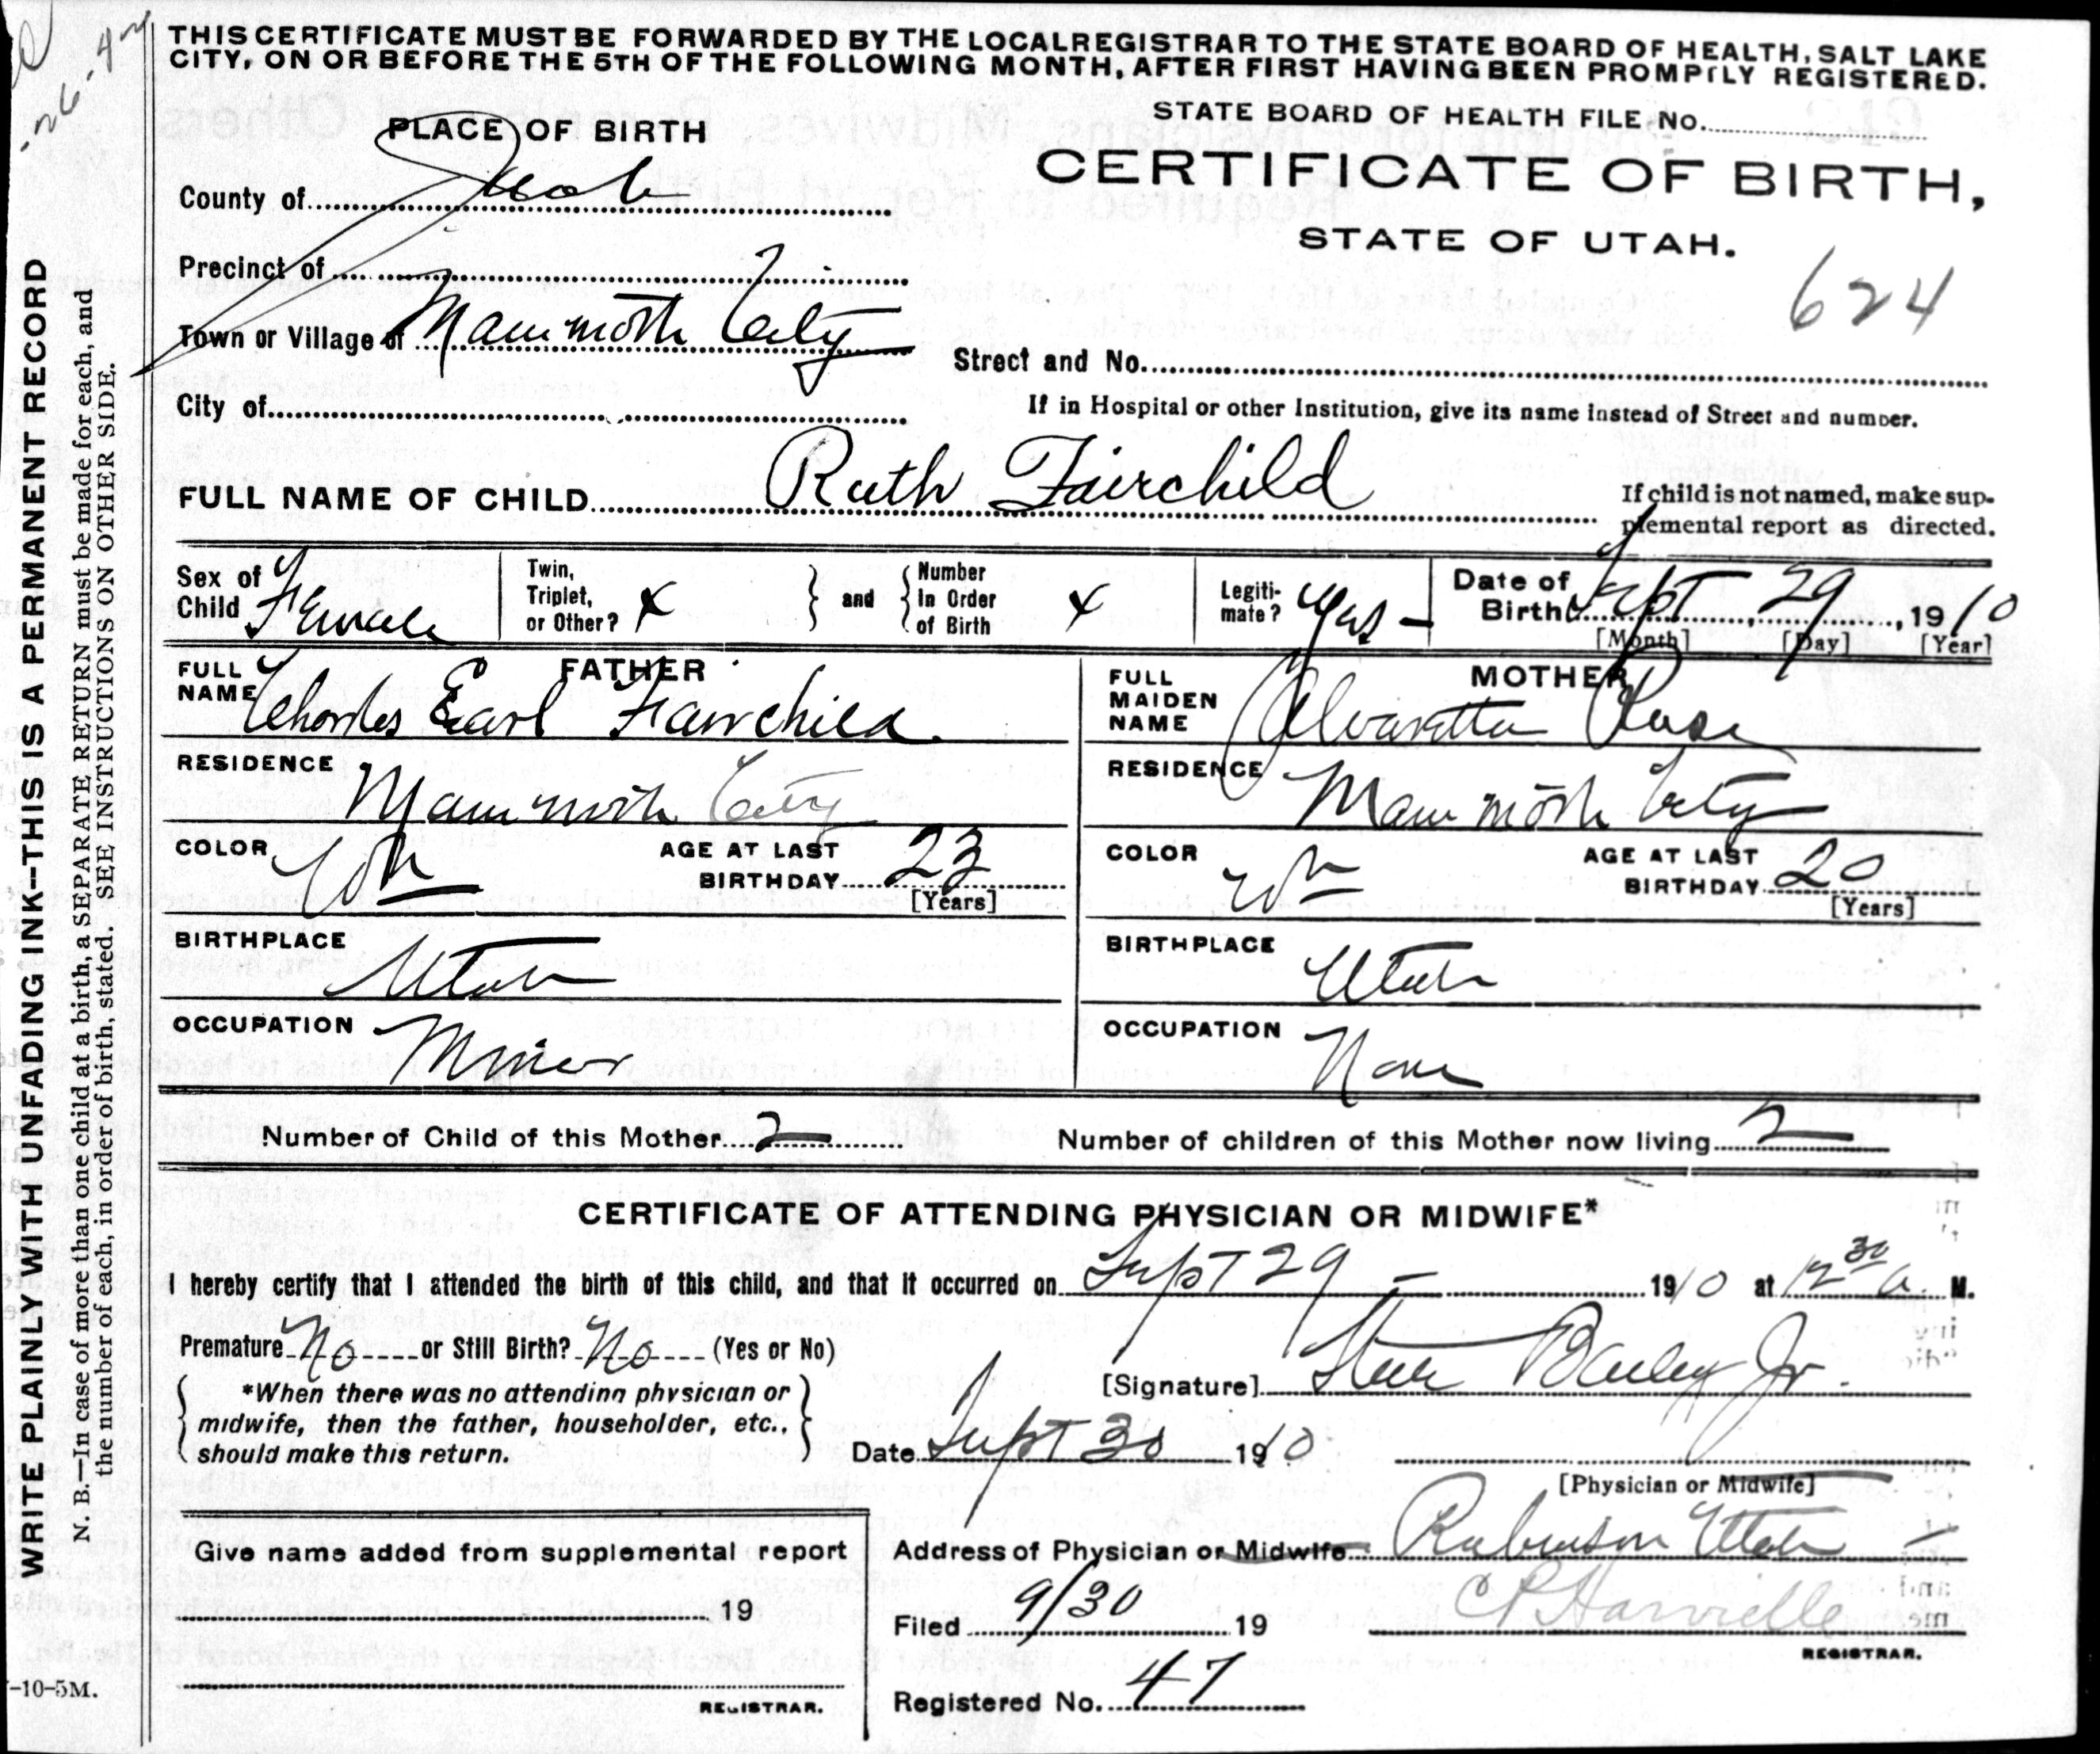 THIS CERTIFICATE MUST BE FORWARDED BY THE LOCAL REGISTRAR TO THE STATE BOARD OF HEALTH, SALT LAKE
CITY, ON OR BEFORE THE 5TH OF THE FOLLOWING MONTH, AFTER FIRST HAVING BEEN PROMPTLY REGISTERED.
STATE BOARD OF HEALTH FILE No.
PLACE OF BIRTH
CERTIFICATE OF BIRTH,
STATE OF UTAH.
County of Juab
624
Precinct of
Town or Village of Mammoth City
Street and No.
City of
If in Hospital or other Institution, give its name instead of Street and number.
FULL NAME OF CHILD Ruth Fairchild
If child is not named, make sup-
plemental report as directed.
Sex of Child Female
Twin, Triplet, or Other? x
and
Number In Order of Birth x
Legiti-mate? Yes -
Date of Birth Sept 29, 1910
[Month] [Day] [Year]
FATHER
FULL NAME Charles Earl Fairchild
RESIDENCE Mammoth City
COLOR Wh
AGE AT LAST BIRTHDAY 23
[Years]
BIRTHPLACE Utah
OCCUPATION Miner
MOTHER
FULL MAIDEN NAME Alvaretta
RESIDENCE Mammoth City
COLOR Wh
AGE AT LAST BIRTHDAY 20
[Years]
BIRTHPLACE Utah
OCCUPATION None
Number of Child of this Mother 2
Number of children of this Mother now living 2
CERTIFICATE OF ATTENDING PHYSICIAN OR MIDWIFE*
I hereby certify that I attended the birth of this child, and that it occurred on Sept 29 - 1910 at 12 30 a. M.
Premature No or Still Birth? No (Yes or No)
[Signature] Steele Bailey Jr.
*When there was no attending physician or
midwife, then the father, householder, etc.,
should make this return.
Date Sept 30 1910
[Physician or Midwife]
Give name added from supplemental report
19
REGISTRAR.
Address of Physician or Midwife Robinson Utah -
Filed 9/30 19
C P Harvielle
REGISTRAR.
Registered No. 47
WRITE PLAINLY WITH UNFADING INK--THIS IS A PERMANENT RECORD
N. B.—In case of more than one child at a birth, a SEPARATE RETURN must be made for each, and
the number of each, in order of birth, stated. SEE INSTRUCTIONS ON OTHER SIDE.
-10-5M.